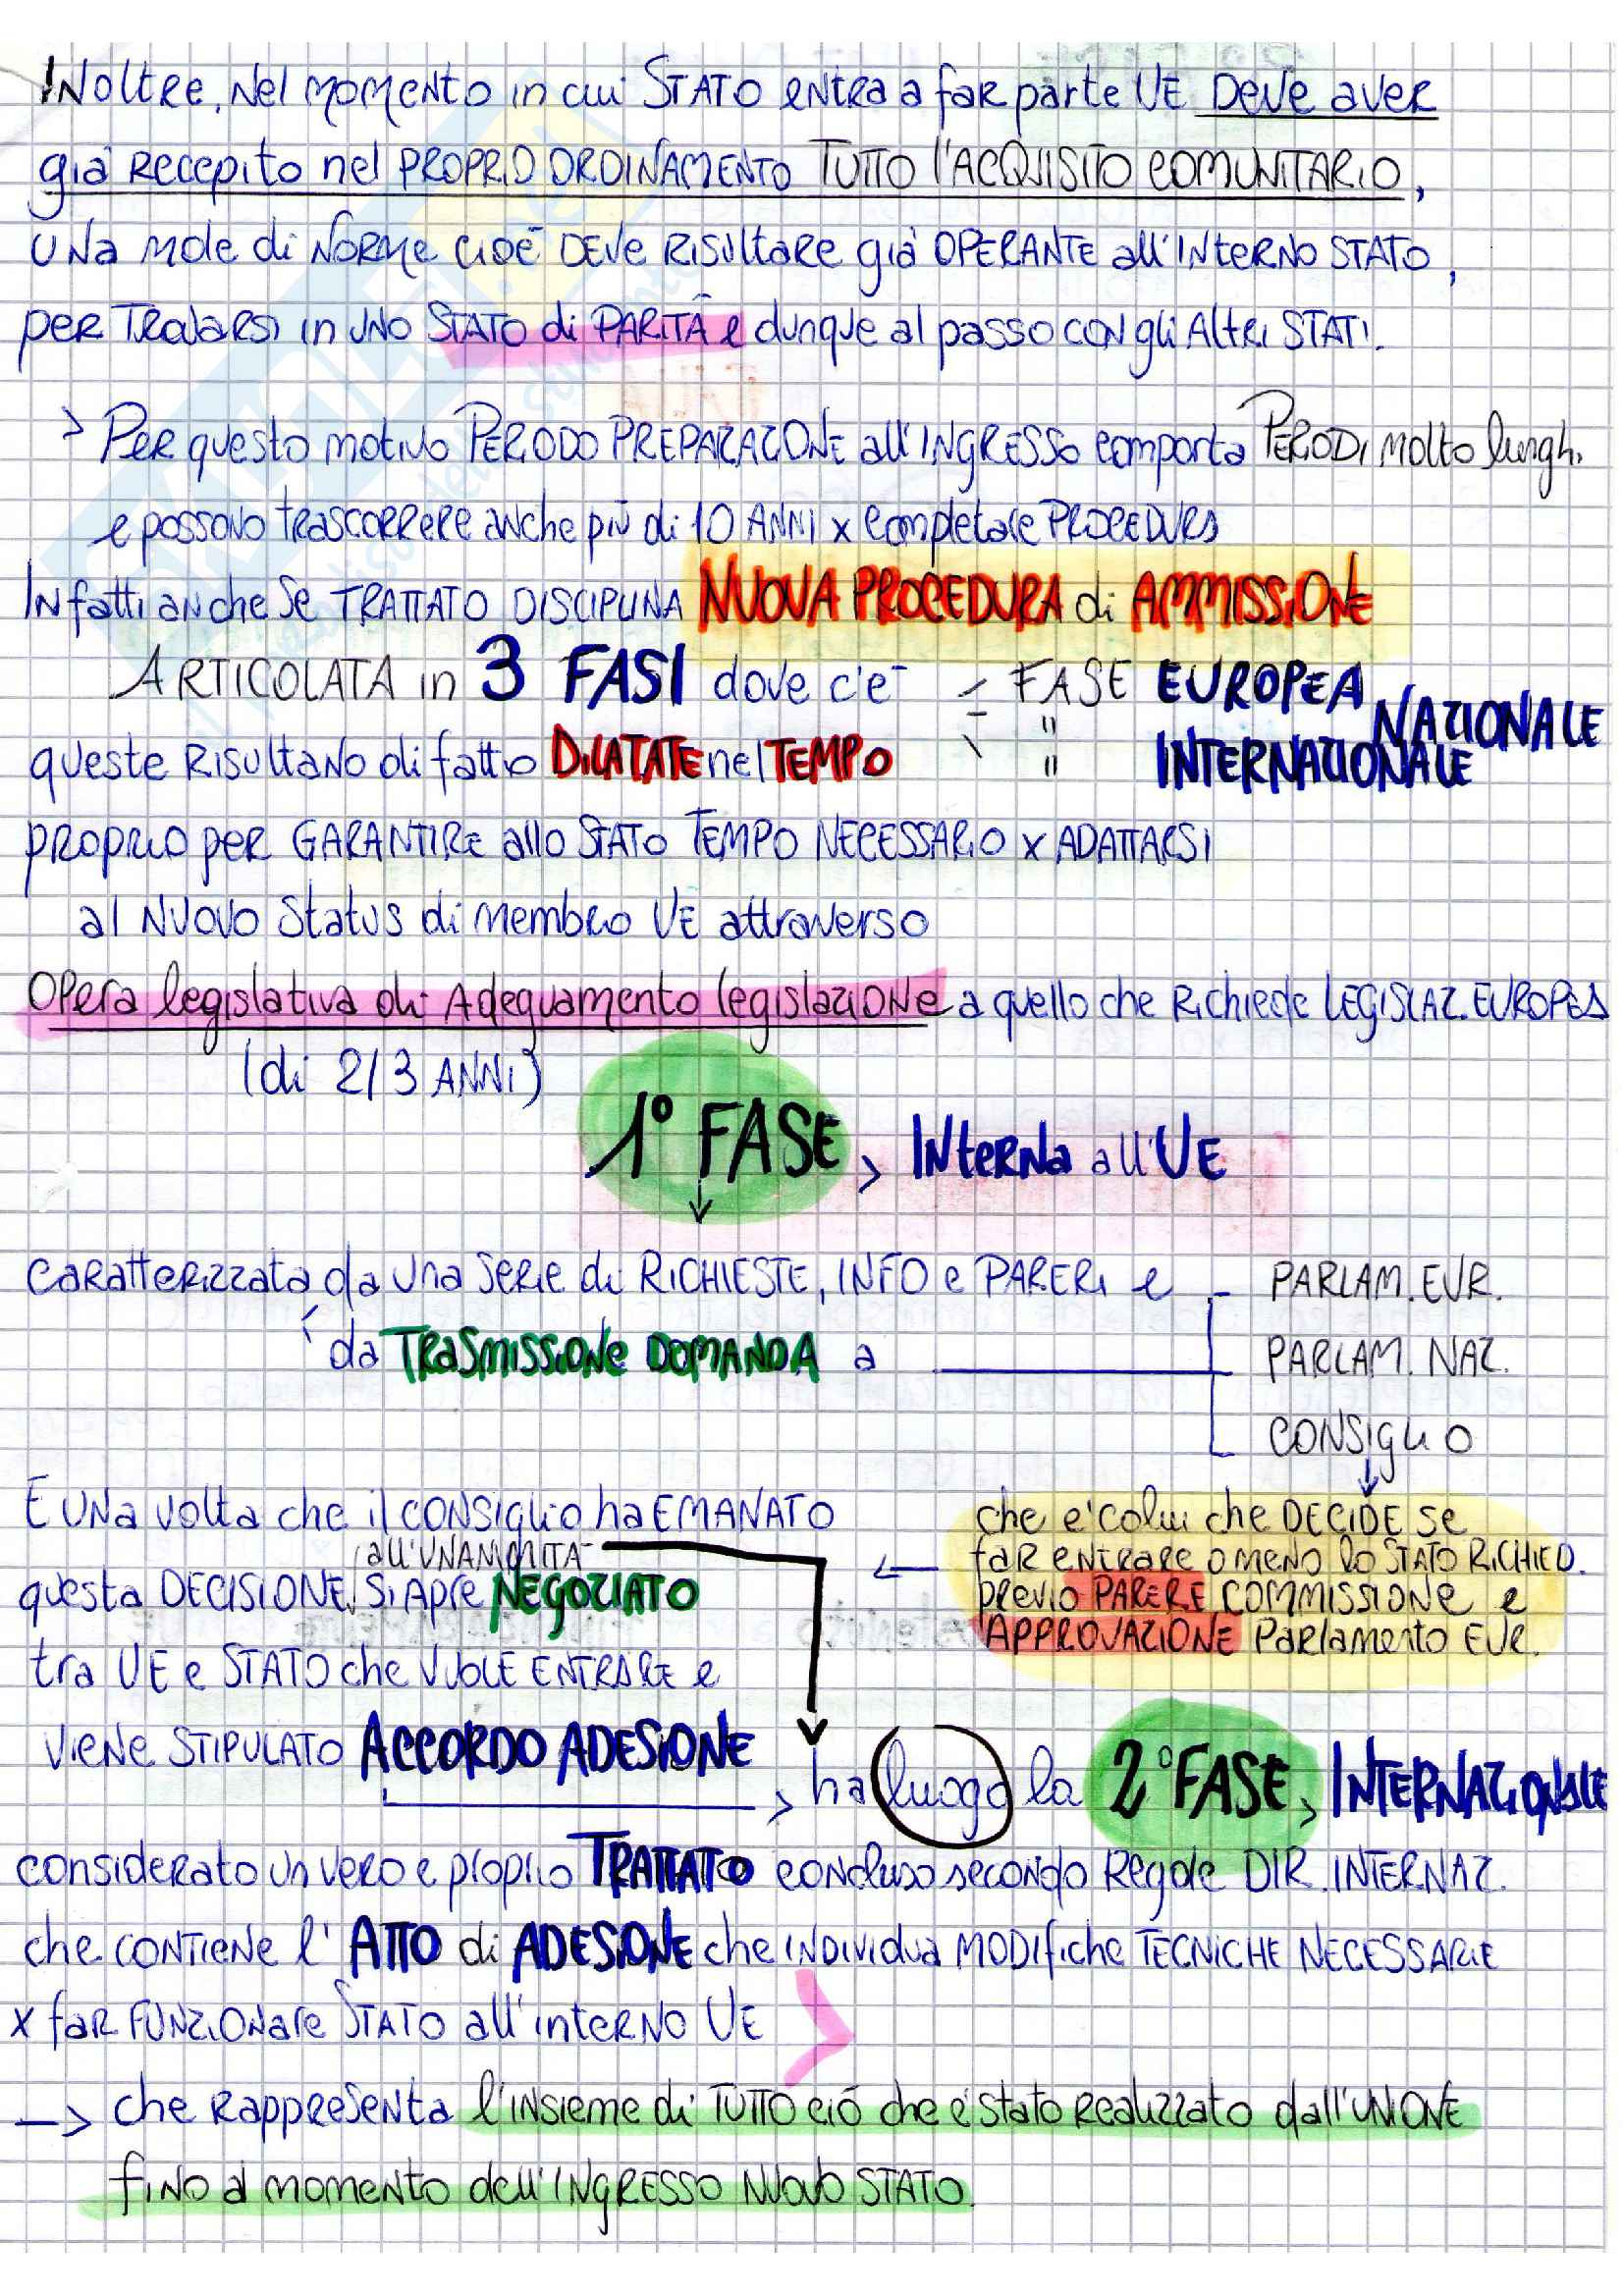 INOLTRE, Nel MOMENTO in cui STATO ENTRA a far parte UE DEVE AVER
già Recepito nel PROPRIO ORDINAMENTO TUTTO l'ACQUISITO COMUNITARIO,
UNA mole di NORME CIOÈ DEVE RISULTARE già OPERANTE all'INTERNO STATO,
per TROVARSI in UNO STATO di PARITÀ e dunque al passo CON gli Altri STATI.
> Per questo motivo PERIODO PREPARAZIONE all'INGRESSO comporta PERIODI molto lunghi
e possono TRASCORRERE anche più di 10 ANNI x completare PROCEDURA
INfatti anche Se TRATTATO DISCIPLINA NUOVA PROCEDURA di AMMISSIONE
ARTICOLATA in 3 FASI dove c'è - FASE EUROPEA
- " NAZIONALE
queste RISULTANO di fatto DILATATE nel TEMPO \ " INTERNAZIONALE
PROPRIO per GARANTIRE allo STATO TEMPO NECESSARIO x ADATTARSI
al NUOVO Status di Membro UE attraverso
Opera legislativa di Adeguamento legislazione a quello che Richiede LEGISLAZ. EUROPEA
(di 2/3 ANNI)
1° FASE > INTERNA all'UE
↓
caratterizzata da una serie di RICHIESTE, INFO e PARERI e - PARLAM. EUR.
da TRASMISSIONE DOMANDA a PARLAM. NAZ.
CONSIGLIO
↓
E UNA volta che il CONSIGLIO ha EMANATO
all'UNANIMITÀ
questa DECISIONE, si apre NEGOZIATO
che è colui che DECIDE se
far entrare o meno lo STATO RICHIED.
previo PARERE COMMISSIONE e
APPROVAZIONE Parlamento EUR.
tra UE e STATO che VUOLE ENTRARE e
viene STIPULATO ACCORDO ADESIONE > ha luogo la 2° FASE > INTERNAZIONALE
considerato un vero e proprio TRATTATO concluso secondo Regole DIR. INTERNAZ.
che CONTIENE l'ATTO di ADESIONE che INDIVIDUA MODIfiche TECNICHE NECESSARIE
x far FUNZIONARE STATO all'interno UE
-> che RAPPRESENTA l'INSIEME di TUTTO ciò che è stato realizzato dall'UNIONE
fino al momento dell'INGRESSO NUOVO STATO.